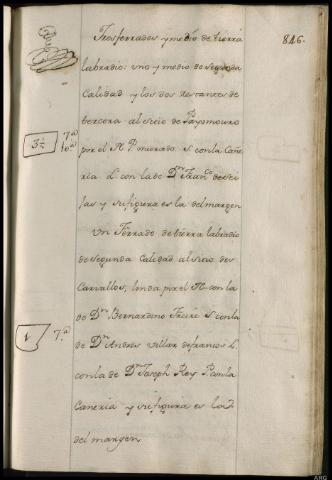 846.
Tres ferrados y medio de tierra
labradio: uno y medio de segunda
Calidad y los dos restantes de
tercera al sicio de Payomouro
3½ 7ª 10ª
por el N. P. murado S. con la Cañe
ria L. con la de Dⁿ Franco de Sei
jas y su figura es la del margen
Un Ferrado de tierra labradio
de segunda Calidad al sicio dos
Carvallos, linda por el N. con la
de Dⁿ Bernardino Freire S. con la
1 7.ª
de Dⁿ Andres Villar defrancos L.
con la de Dⁿ Joseph Rey P. con la
Caneria y su figura es la
del margen